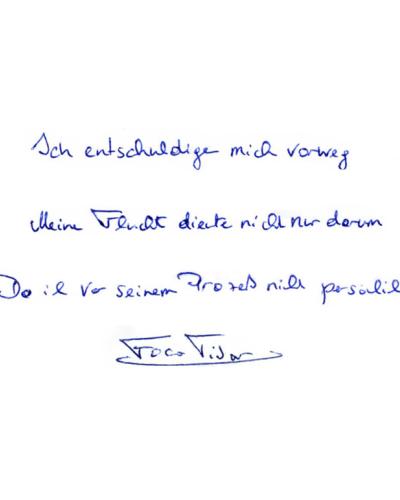 Ich entschuldige mich vorweg
Meine Flucht diente nicht nur darum
Da ich vor seinem Prozeß nicht persönlich